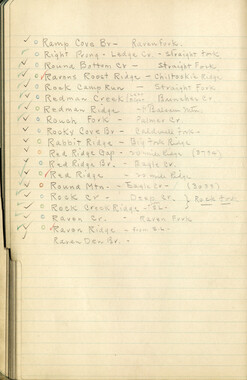 Ramp Cove Br - Raven Fork.
Right Prong - Ledge Cr. - Straight Fork
Round Bottom Cr - Straight Fork
Ravens Roost Ridge - Chiltoskie Ridge
Rock Camp Run - Straight Fork
Redman Creek - Bunches Cr.
Redman Ridge - Balsam Mtn
Rough Fork - Palmer Cr.
Rocky Cove Br - Caldwell Fork -
Rabbit Ridge - Big Fork Ridge
Red Ridge Gap -
Red Ridge Br. - Eagle Cr.
Red Ridge -
Round Mtn. -
Rock Cr -
Rock Creek Ridge -
Raven Cr. - Raven Fork
Raven Ridge -
Raven Den Br. -